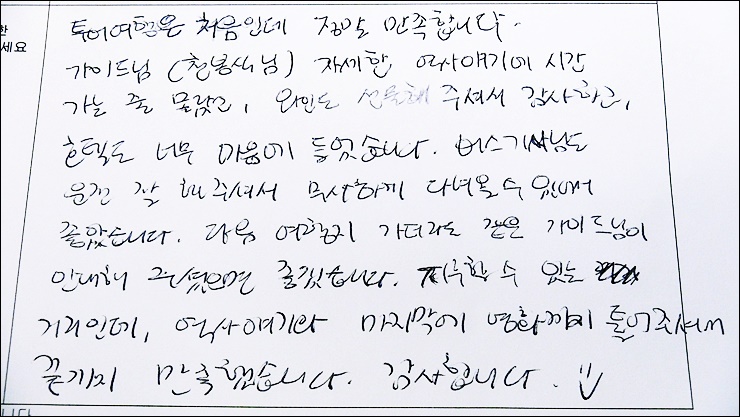 한
세요
투어여행은 처음인데 정말 만족합니다.
가이드님 (천봉서님) 자세한 역사얘기에 시간
가는 줄 몰랐고, 와인도 선물해 주셔서 감사하고,
호텔도 너무 마음에 들었습니다. 버스기사님도
운전 잘 해주셔서 무사하게 다녀올 수 있어서
좋았습니다. 다음 여행지 가더라도 같은 가이드님이
안내해 주셨으면 좋겠습니다. 지루할 수 있는
거리인데, 역사얘기와 마지막에 영화까지 틀어주셔서
끝까지 만족했습니다. 감사합니다.
니다